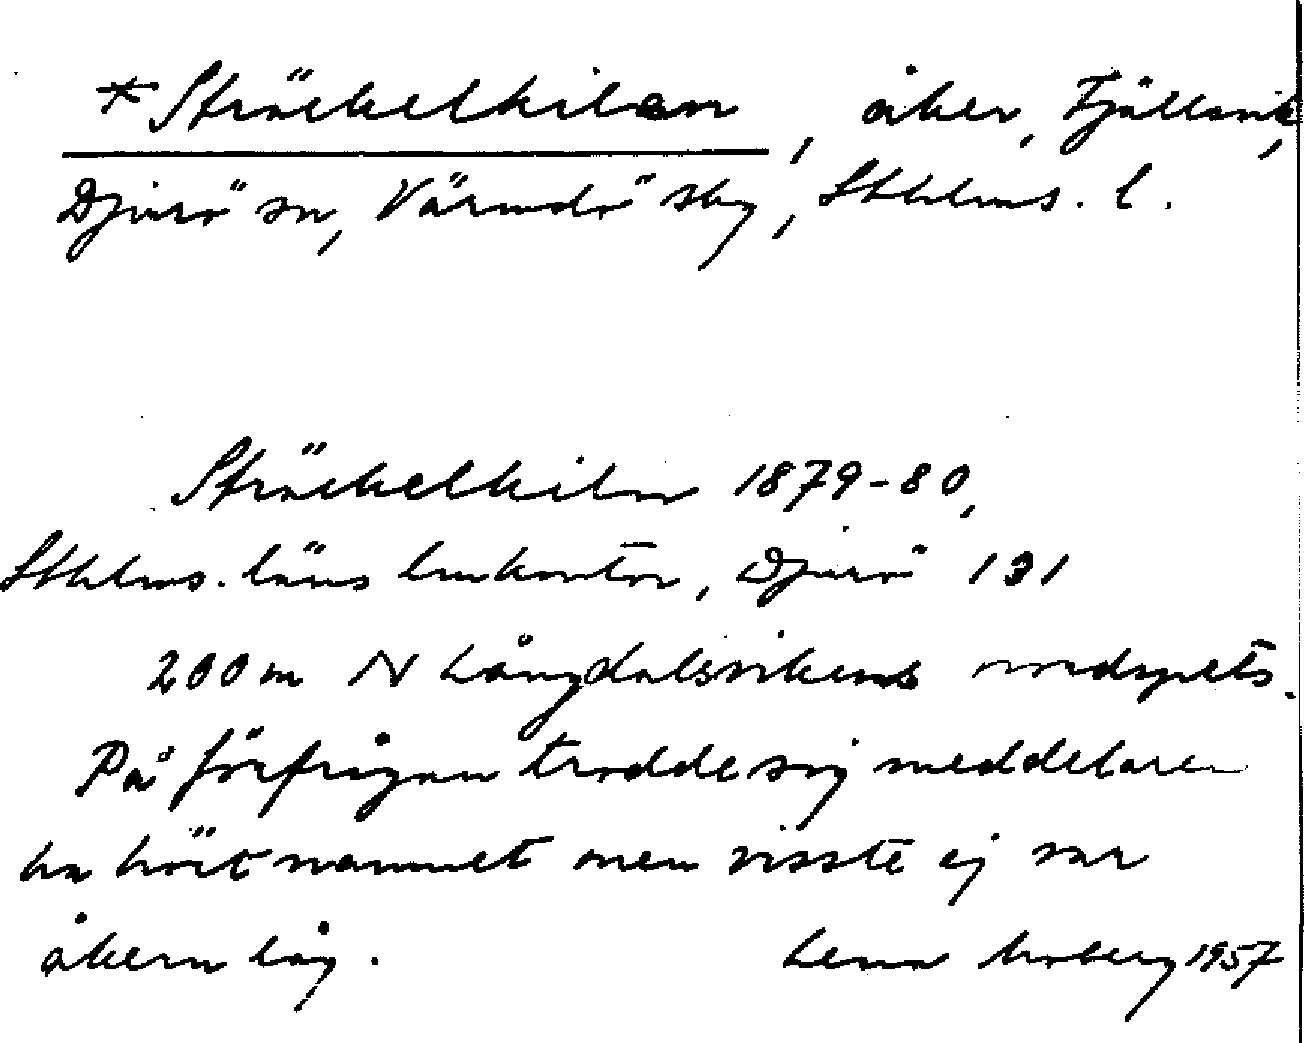 *Sträckelkilen, åker, Fjällsvik,
Djurö sn, Värmdö skg, Sthlms. l.
Sträckelkilen 1879-80,
Sthlms. läns lmkontor, Djurö 131
200 m N Långdalsvikens nordspets.
På förfrågan trodde sig meddelaren
ha hört namnet men visste ej var
åkern låg. Lena Moberg 1957